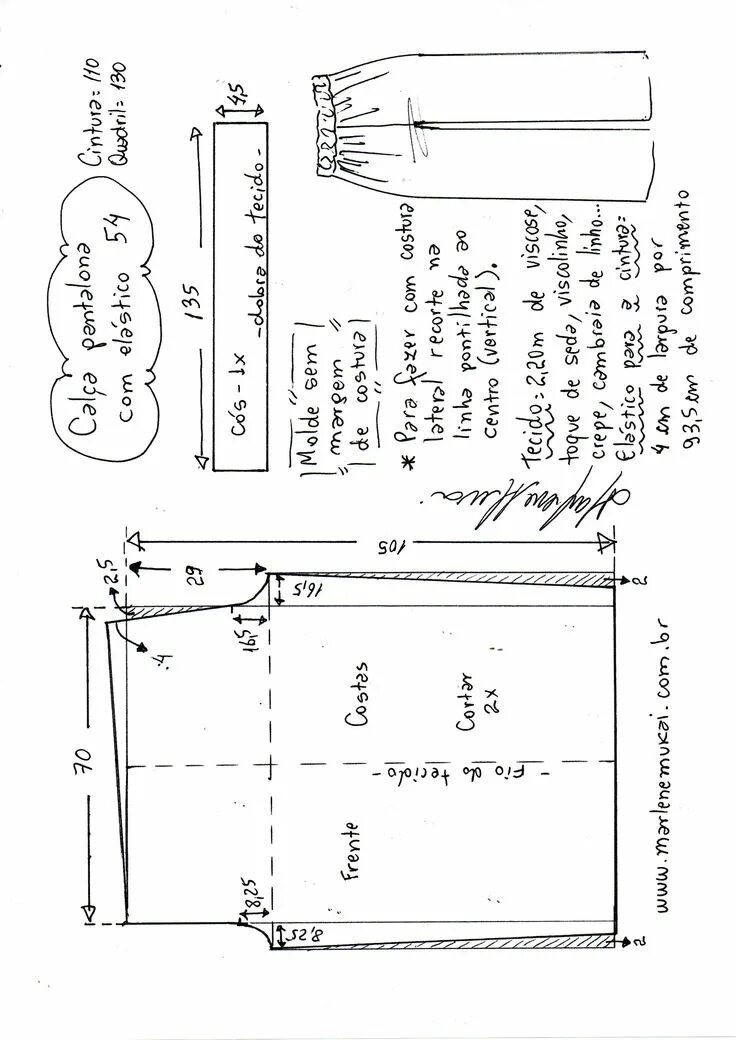 Calça pantalona
com elástico 54
Cintura=110
Quadril=130
135
4,5
Cós - 1x
- dobra do tecido -
Molde sem
margem
de costura
* Para fazer com costura
lateral recorte na
linha pontilhada ao
centro (vertical).
Tecido=2,20m de viscose,
toque de seda, viscolinho,
crepe, cambraia de linho...
Elástico para a cintura=
4 cm de largura por
93,5 cm de comprimento
70
2,5
4
29
105
8,25
8,25
16,5
16,5
Frente
Costas
Cortar
2x
- Fio do tecido -
2
2
www.marlenemukai.com.br